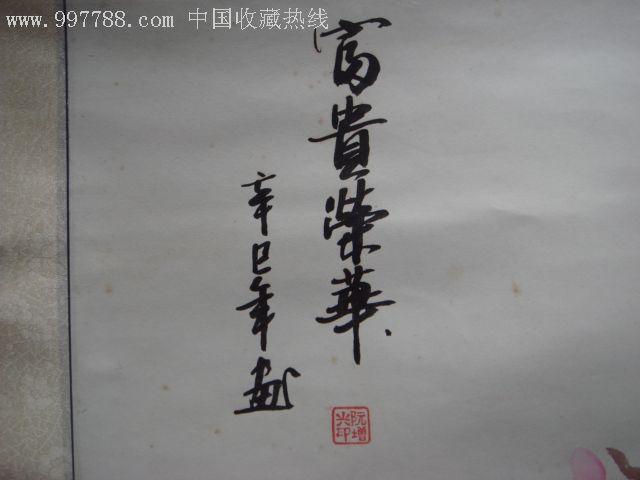 www.997788.com 中国收藏热线
富貴榮華
辛巳年画
阮增兴印